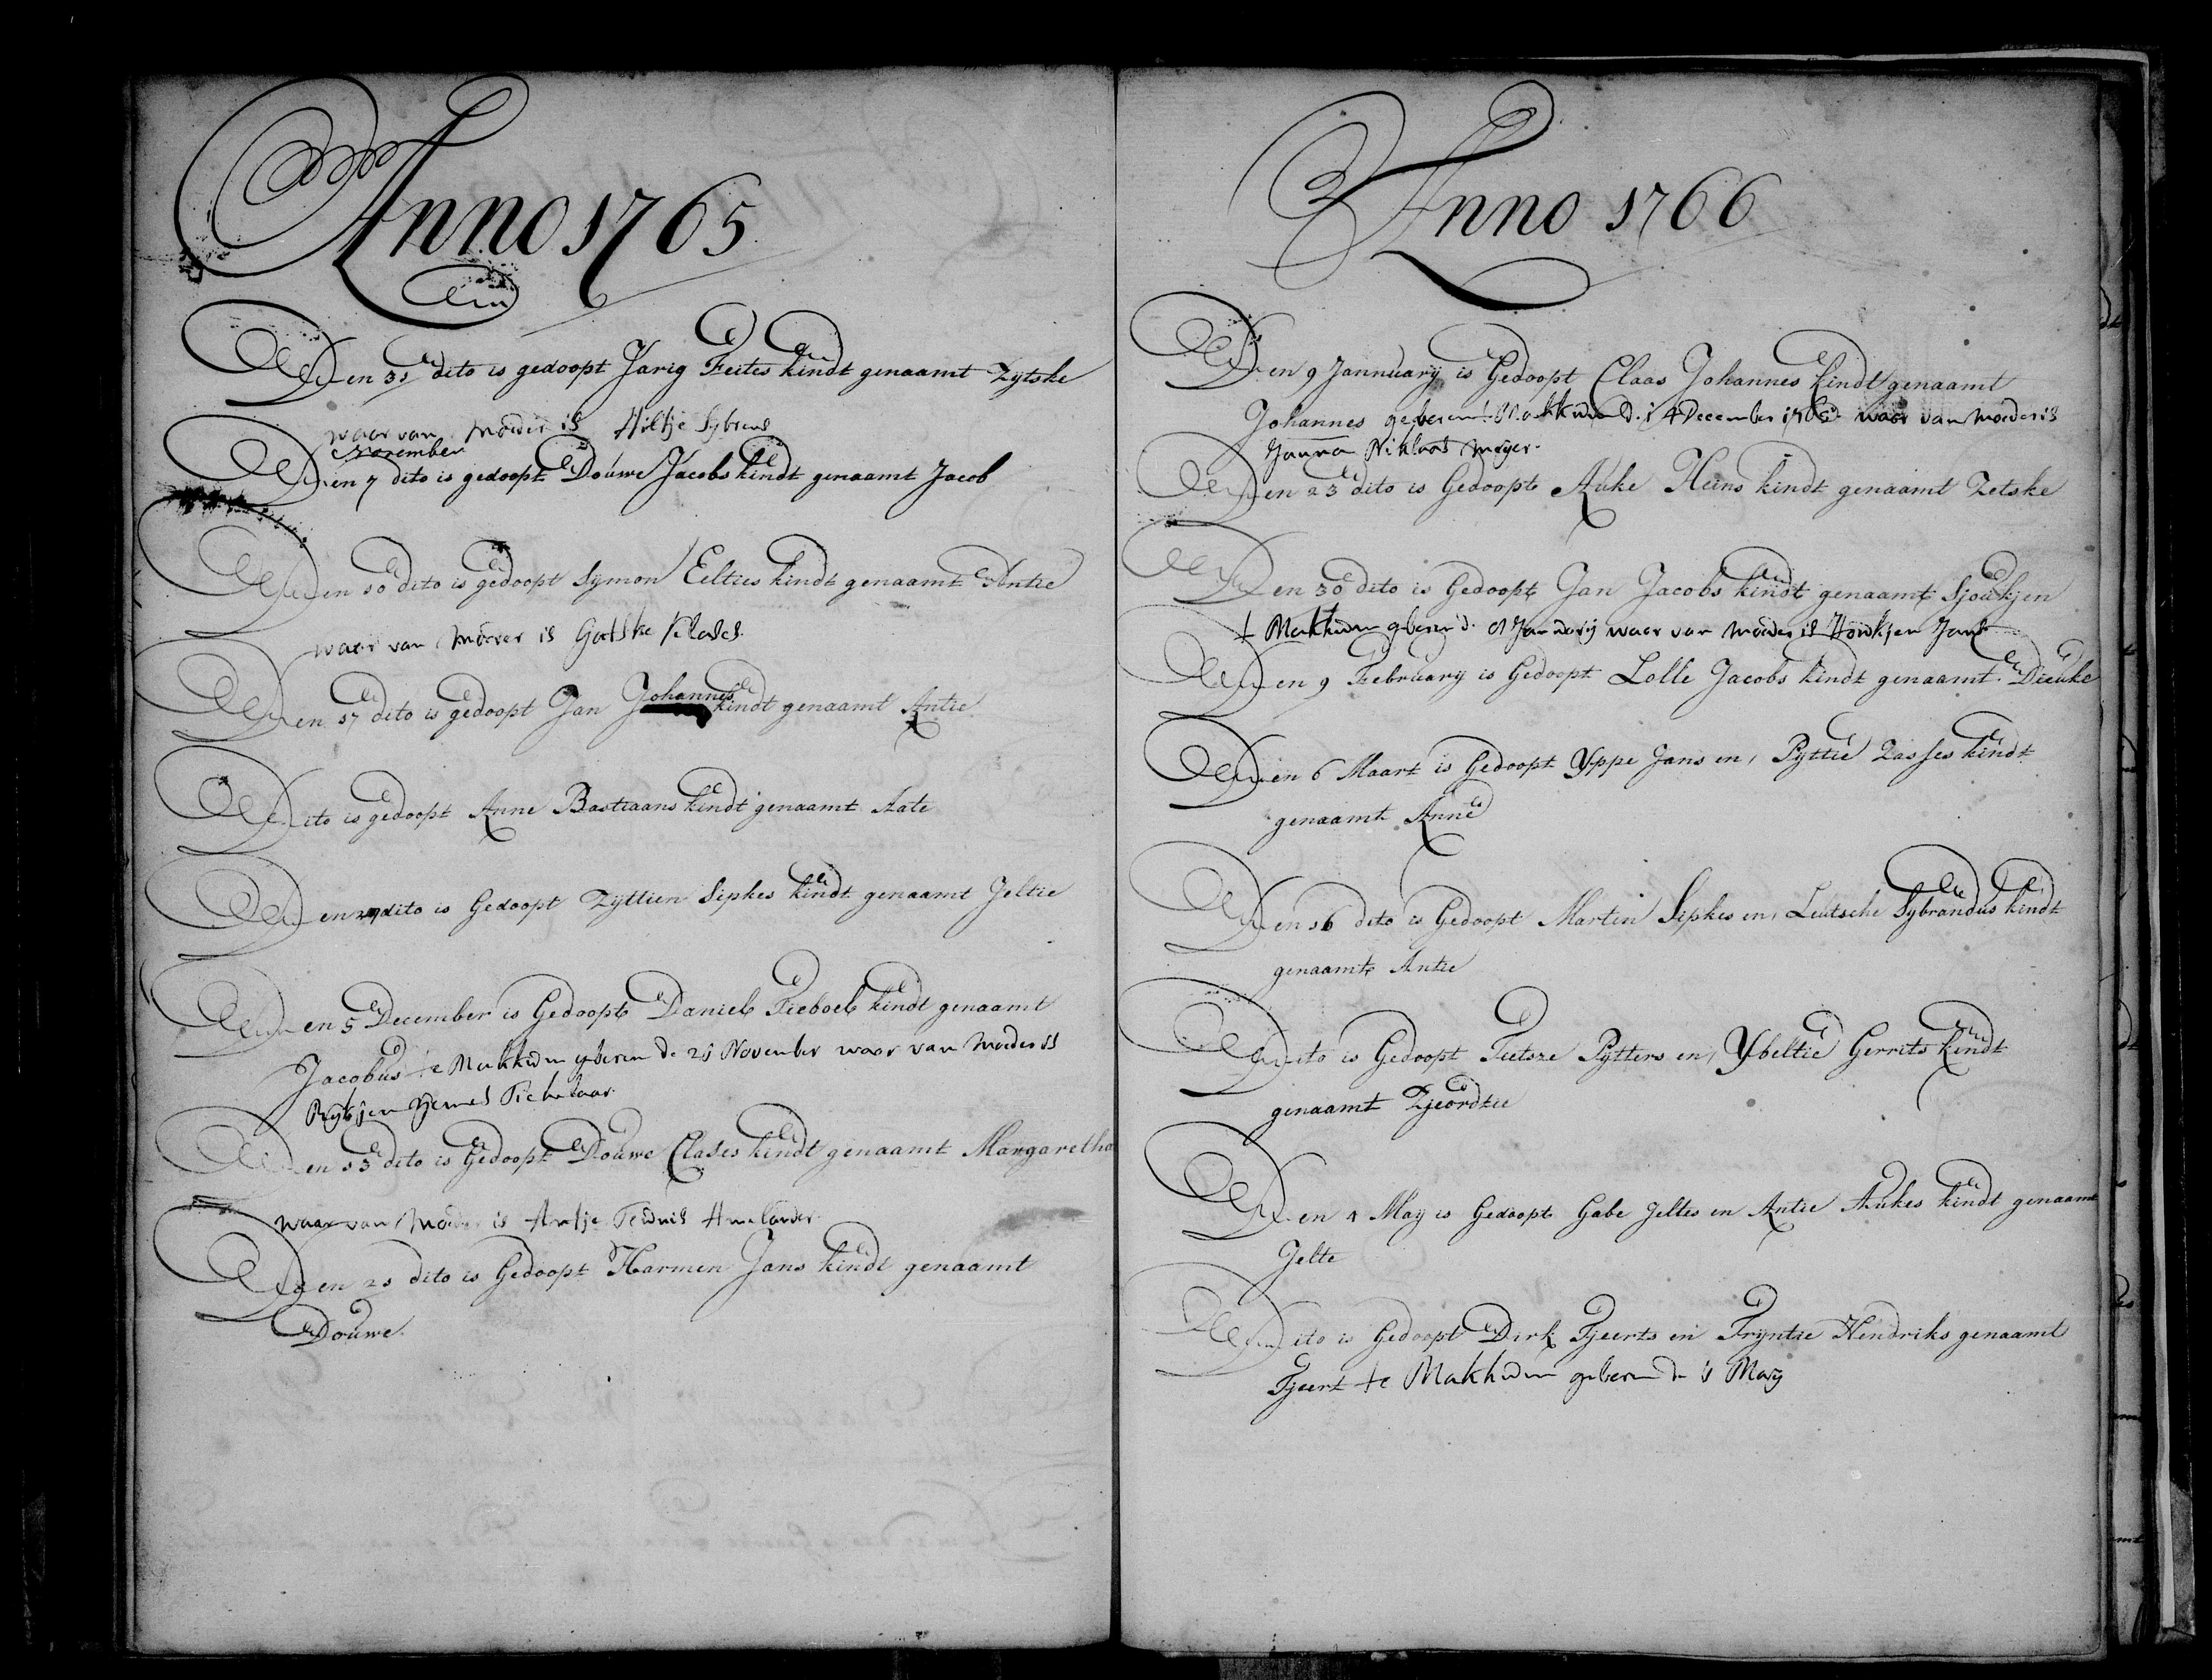 Anno 1765
Den 31 dito is gedoopt Jarig Feites kindt genaamt Zytske
waar van Moeder is Hiltje Sybrens
November
Den 7 dito is gedoopt Douwe Jacobs kindt genaamt Jacob
Den 10 dito is gedoopt Symon Eelties kindt genaamt Antie
waar van Moeder is Gatske Klases
Den 17 dito is gedoopt Jan Johannes kindt genaamt Antie
Dito is gedoopt Anne Bastiaans kindt genaamt Aate
Den dito is Gedoopt Zyttien Sipkes kindt genaamt Jeltie
Den 5 December is Gedoopt Daniel Tieboel kindt genaamt
Jacobus te Makkum geboren de 21 November waar van Moeder is
Tichelaar
Den 13 dito is Gedoopt Douwe Clases kindt genaamt Margaretha
waar van Moeder is Antje Teunis Amelander
Den 21 dito is Gedoopt Harmen Jans kindt genaamt
Douwe
Anno 1766
Den 9 Jannuarij is Gedoopt Claas Johannes kindt genaamt
Johannes geboren t Makkum d. 14 December 1765 waar van Moeder is
Janna Niklaas Meyer
Den 23 dito is Gedoopt Auke Heins kindt genaamt Zetske
Den 30 dito is Gedoopt Jan Jacobs kindt genaamt Sjoukjen
t Makkum geboren d. Januarij waar van Moeder is Houkjen Jans
Den 9 February is Gedoopt Lolle Jacobs kindt genaamt Dieuke
Den 6 Maart is Gedoopt Yppe Jans en Pyttie Lasses kindt
genaamt Anne
Den 16 dito is Gedoopt Martin Sipkes en Leutsche Sybrandus kindt
genaamt Antie
Dito is Gedoopt Tietsze Pytters en Ybeltie Gerrits kindt
genaamt Zjeordtie
Den 4 May is Gedoopt Gabe Jeltes en Antie Aukes kindt genaamt
Jelte
Dito is Gedoopt Dirk Tjeerts en Tryntie Hendriks genaamt
Tjeert te Makkum geboren de May